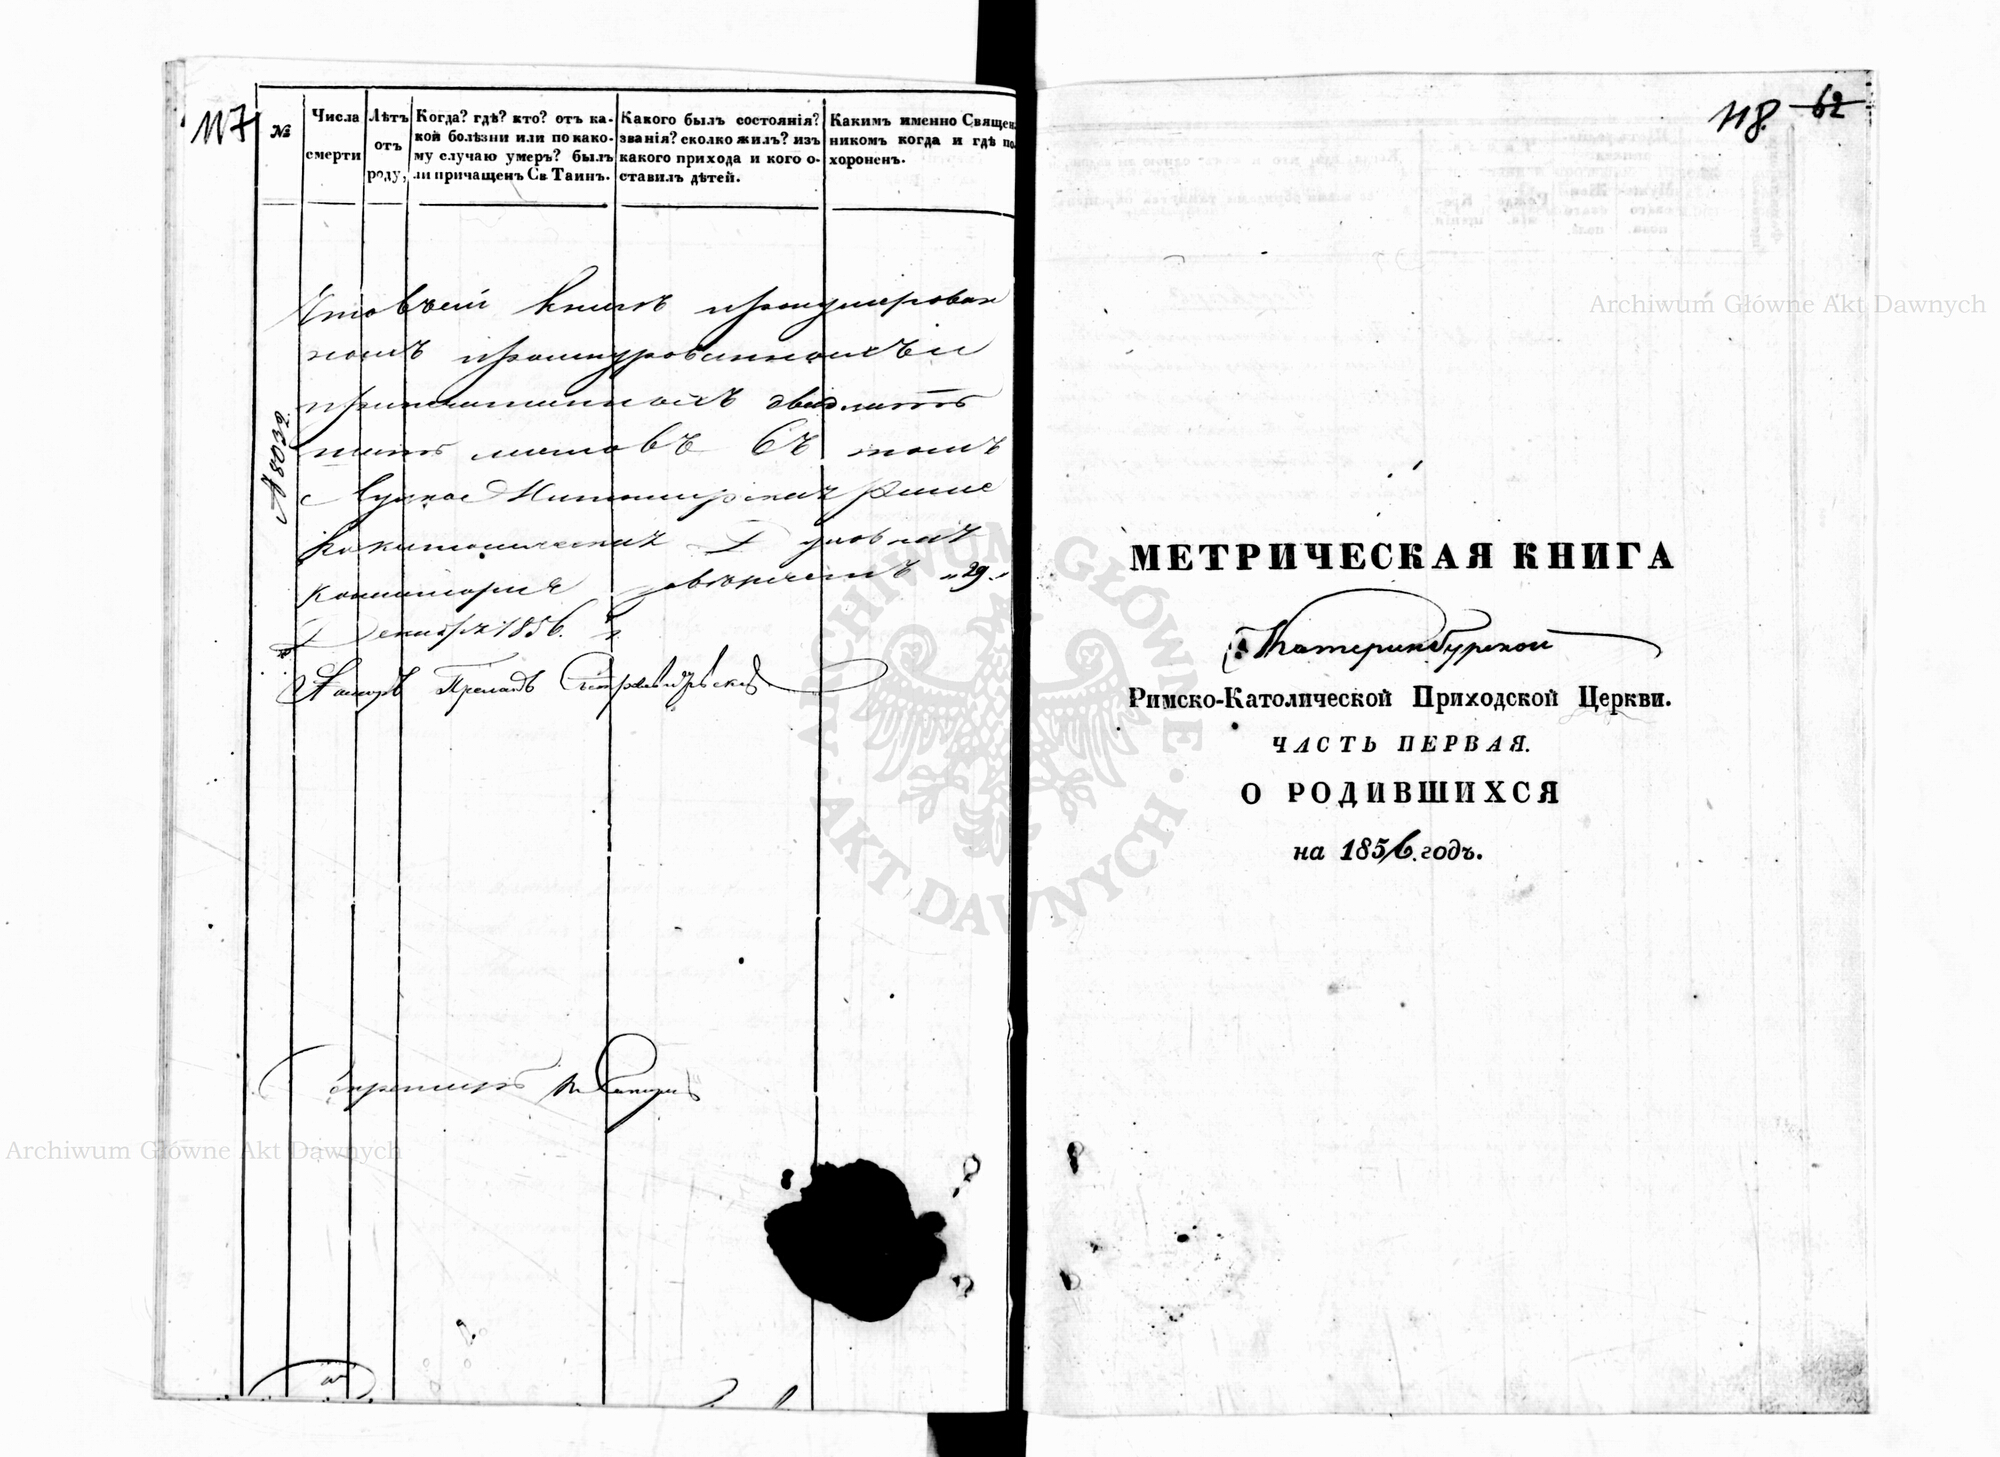 117
№
Числа смерти
Лѣтъ отъ роду,
Когда? гдѣ? кто? отъ ка-
кой болѣзни или по како-
му случаю умеръ? былъ
ли причащенъ Св. Таинъ.
Какого былъ состоянія?
званія? сколко жилъ? изъ
какого прихода и кого о-
ставилъ дѣтей.
Какимъ именно Священ-
никомъ когда и гдѣ по-
хороненъ.
Что въ сей книгѣ пронумерован
ной прошнурованной и
припечатанной двадцать
пять листовъ въ томъ
Луцко Житомирская Римс
Католическая Духовная
Консисторія „29"
Декабря 1856. г.
Прелатъ
Секретарь
№ 8032.
Archiwum Główne Akt Dawnych
118. 62
МЕТРИЧЕСКАЯ КНИГА
Екатеринбургской
Римско-Католической Приходской Церкви.
ЧАСТЬ ПЕРВАЯ.
О РОДИВШИХСЯ
на 1856. годъ.
Archiwum Główne Akt Dawnych
ARCHIWUM GŁÓWNE AKT DAWNYCH